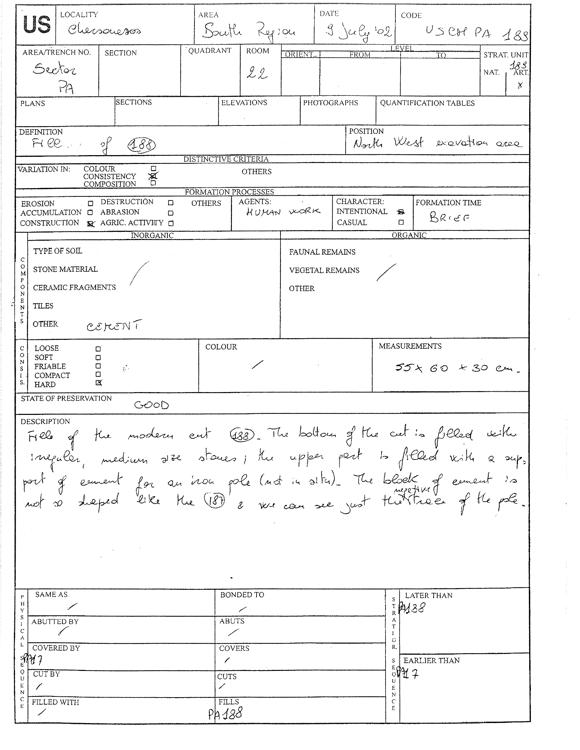 US
LOCALITY
Chersonesos
AREA
South Region
DATE
9 July '02
CODE
USCH PA 183
AREA/TRENCH NO.
Sector
PA
SECTION
QUADRANT
ROOM
22
LEVEL
ORIENT.
FROM
TO
STRAT. UNIT
183
NAT.
ART.
x
PLANS
SECTIONS
ELEVATIONS
PHOTOGRAPHS
QUANTIFICATION TABLES
DEFINITION
Fill of 188
POSITION
North West exavation area
DISTINCTIVE CRITERIA
VARIATION IN:
COLOUR
CONSISTENCY
COMPOSITION
OTHERS
FORMATION PROCESSES
EROSION
ACCUMULATION
CONSTRUCTION
DESTRUCTION
ABRASION
AGRIC. ACTIVITY
OTHERS
AGENTS:
HUMAN WORK
CHARACTER:
INTENTIONAL
CASUAL
FORMATION TIME
BRIEF
COMPONENTS
INORGANIC
TYPE OF SOIL
STONE MATERIAL
CERAMIC FRAGMENTS
TILES
OTHER CEMENT
ORGANIC
FAUNAL REMAINS
VEGETAL REMAINS
OTHER
CONSIS.
LOOSE
SOFT
FRIABLE
COMPACT
HARD
COLOUR
MEASUREMENTS
55 x 60 x 30 cm.
STATE OF PRESERVATION
GOOD
DESCRIPTION
Fills of the modern cut 188. The bottom of the cut is filled with
irregular, medium size stones; the upper part is filled with a sup-
port of cement for an iron pole (not in situ). The block of cement is
not so shaped like the 187 & we can see just the negative trace of the pole.
PHYSICAL SEQUENCE
SAME AS
BONDED TO
ABUTTED BY
ABUTS
COVERED BY
PA17
COVERS
CUT BY
CUTS
FILLED WITH
FILLS
PA188
STRATIGR. SEQUENCE
LATER THAN
PA188
EARLIER THAN
PA17